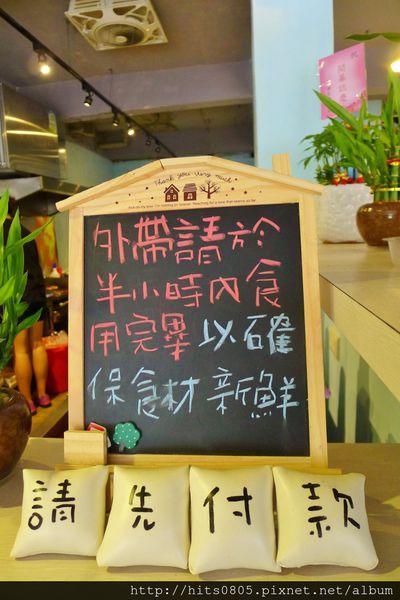 祝
開幕誌慶
Thank you very much
外帶請於
半小時內食
用完畢以確
保食材新鮮
請先付款
http://hits0805.pixnet.net/album